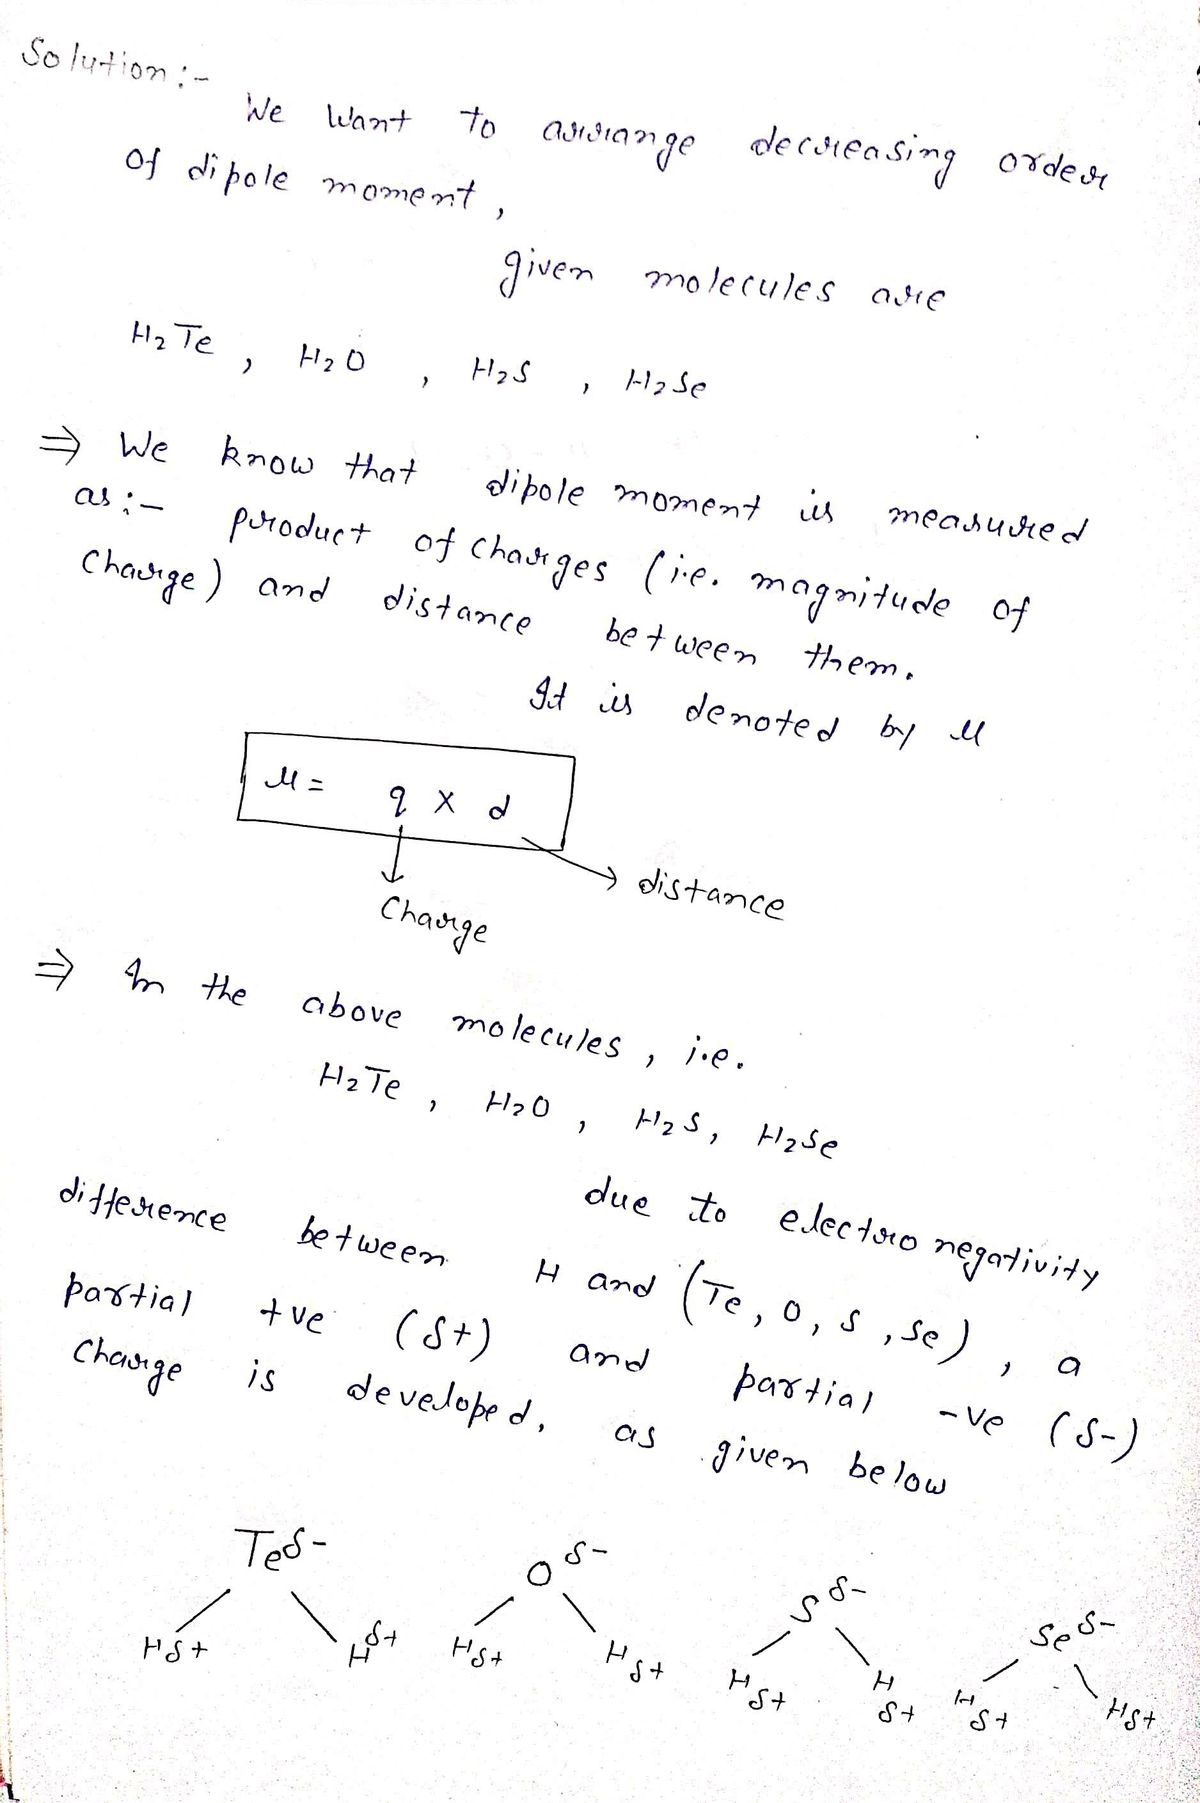 Solution:-
We Want to arrange decreasing order
of dipole moment,
given molecules are
H2Te, H2O, H2S, H2Se
⇒ We know that dipole moment is measured
as:- product of charges (i.e. magnitude of
Charge) and distance between them.
It is denoted by μ
μ = q × d
distance
Charge
⇒ In the above molecules, i.e.
H2Te, H2O, H2S, H2Se
due to electro negativity
difference between H and (Te, O, S, Se), a
partial +ve (δ+) and partial -ve (δ-)
Charge is developed, as given below
Teδ- Oδ- Sδ- Seδ-
Hδ+ Hδ+ Hδ+ Hδ+ Hδ+ Hδ+ Hδ+ Hδ+